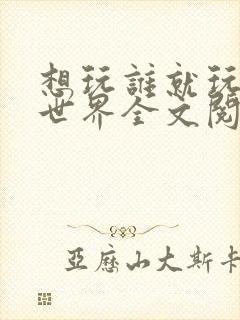 想玩誰就玩
世界全文閱
亞歷山大斯卡